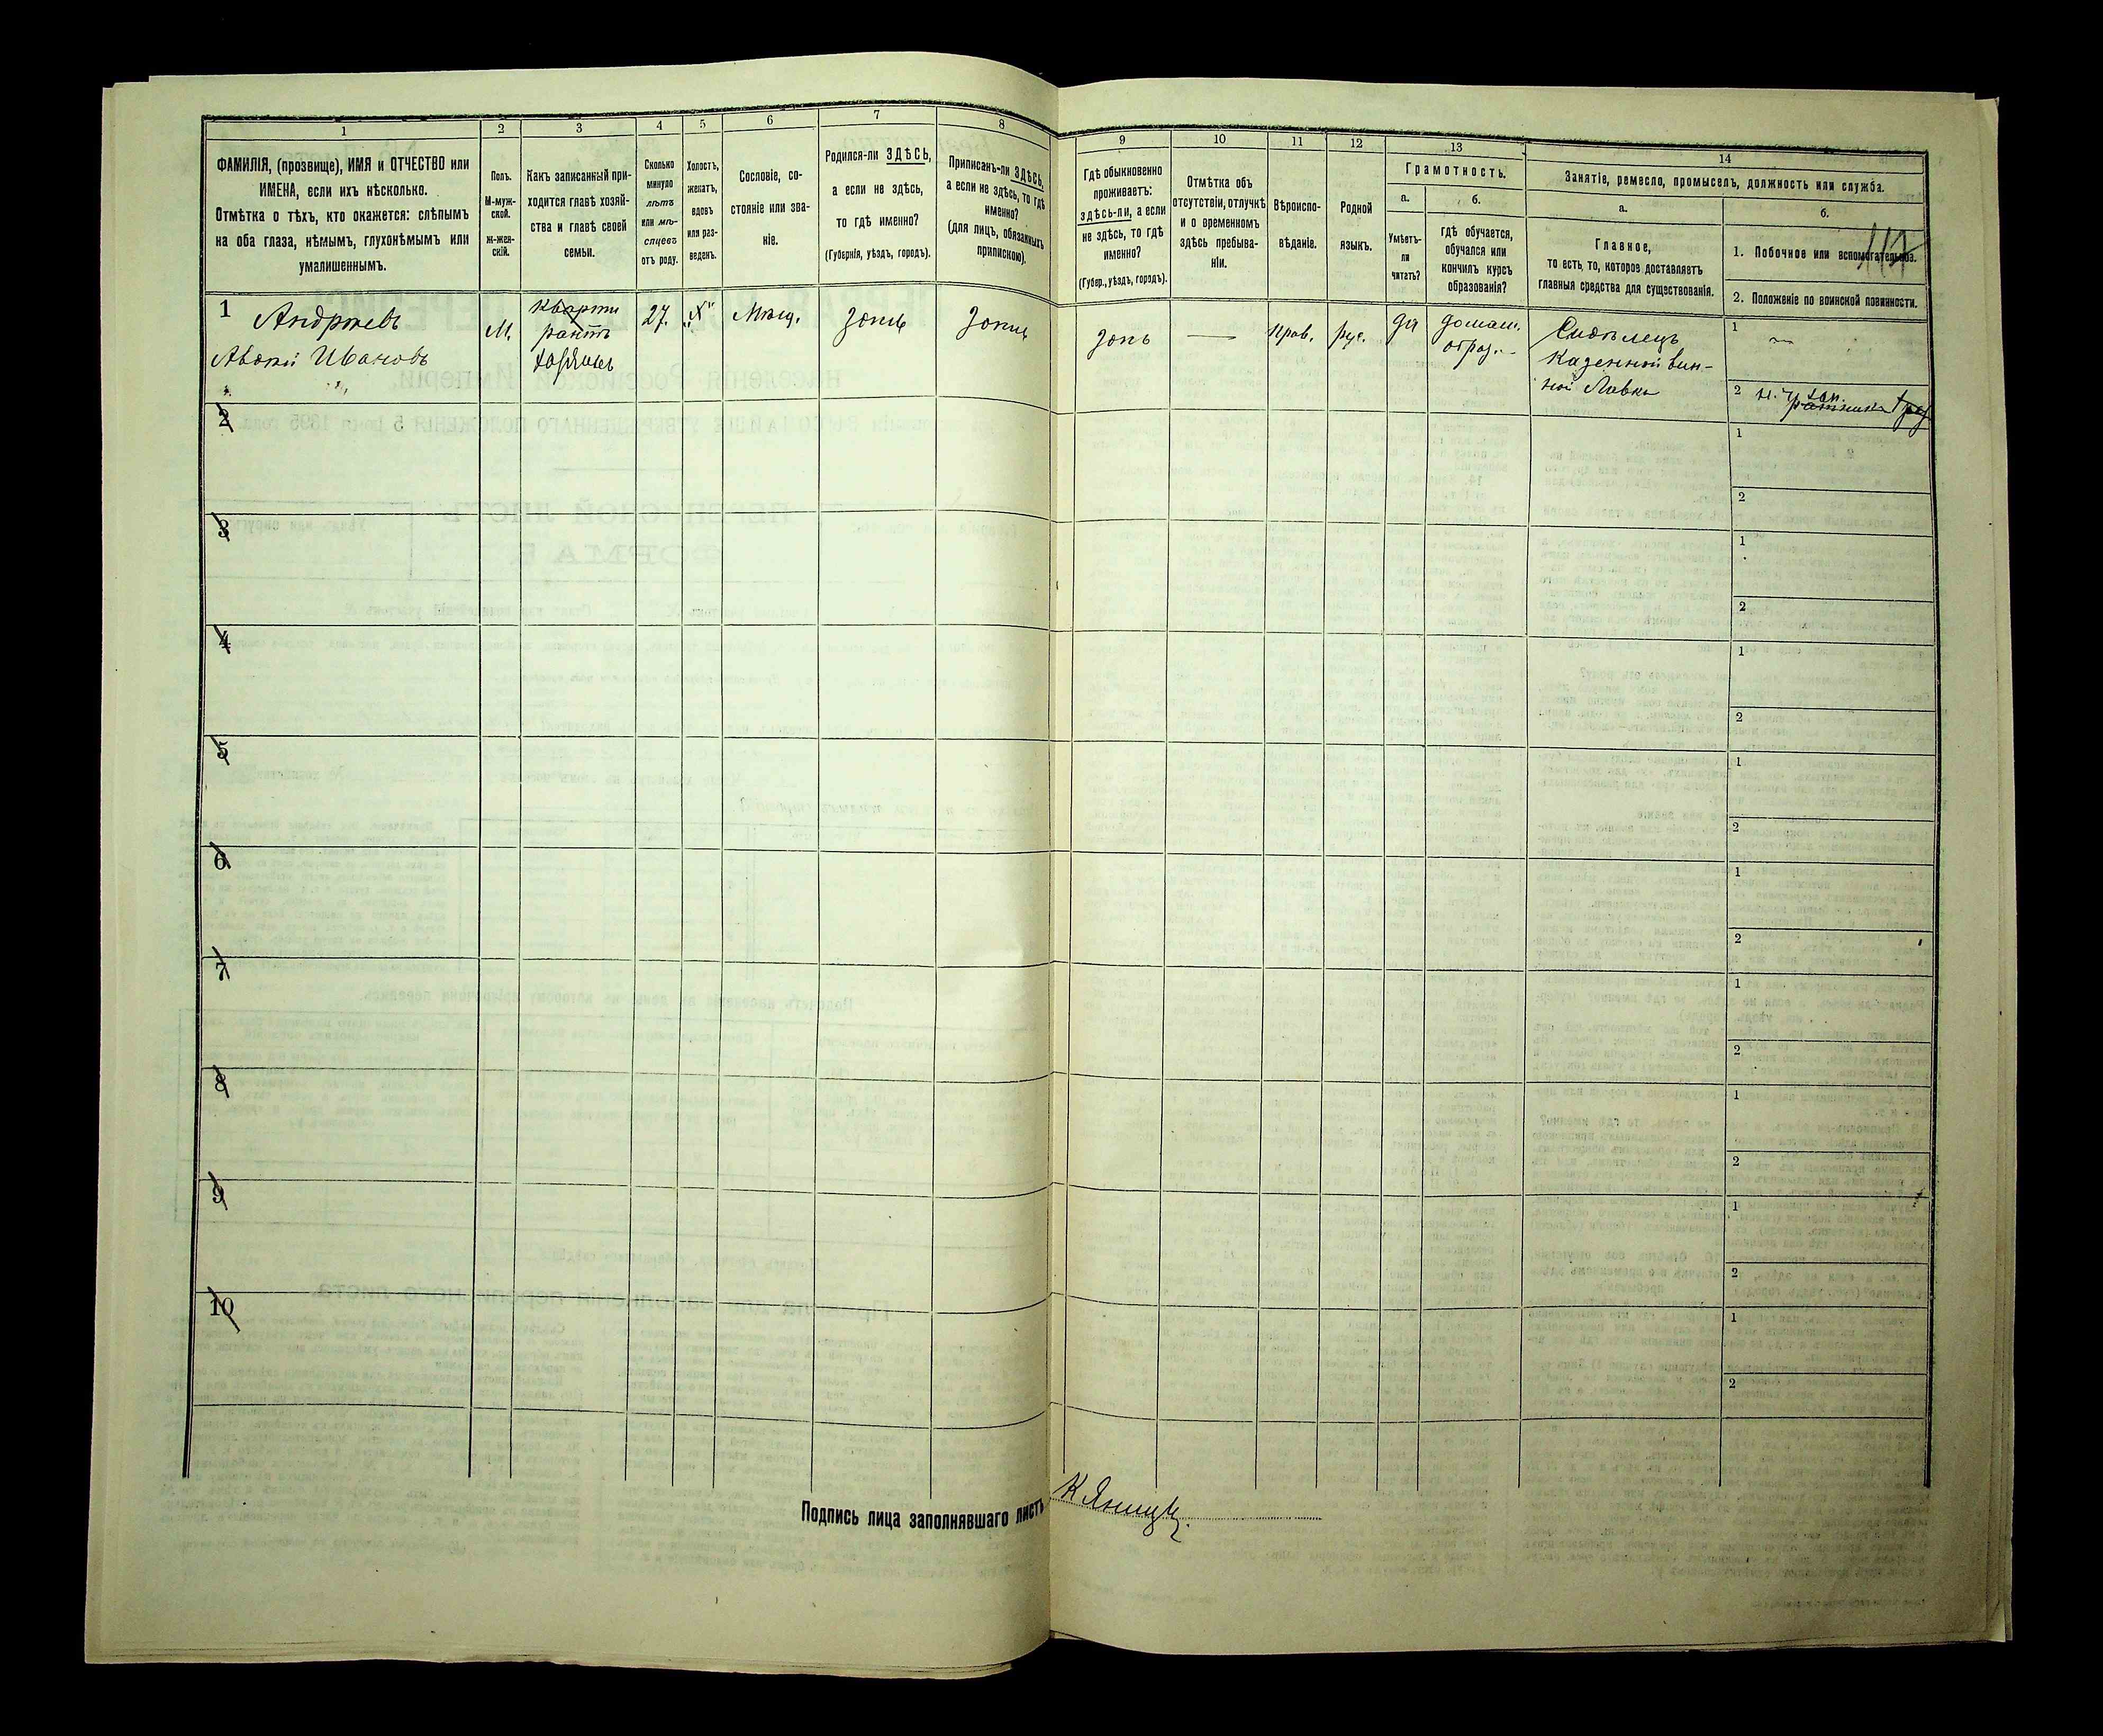 1
2
3
4
5
6
7
8
ФАМИЛІЯ, (прозвище), ИМЯ и ОТЧЕСТВО или
ИМЕНА, если ихъ нѣсколько.
Отмѣтка о тѣхъ, кто окажется: слѣпымъ
на оба глаза, нѣмымъ, глухонѣмымъ или
умалишеннымъ.
Полъ.
М-муж-
ской.
Ж-жен-
скій.
Какъ записанный при-
ходится главѣ хозяй-
ства и главѣ своей
семьи.
Сколько
минуло
лѣтъ
или мѣ-
сяцевъ
отъ роду.
Холостъ,
женатъ,
вдовъ
или раз-
веденъ.
Сословіе, со-
стояніе или зва-
ніе.
Родился-ли ЗДѢСЬ,
а если не здѣсь,
то гдѣ именно?
(Губернія, уѣздъ, городъ).
Приписанъ-ли ЗДѢСЬ,
а если не здѣсь, то гдѣ
именно?
(для лицъ, обязанныхъ
припискою).
9
10
11
12
13
14
Гдѣ обыкновенно
проживаетъ:
здѣсь-ли, а если
не здѣсь, то гдѣ
именно?
(Губер., уѣздъ, городъ).
Отмѣтка объ
отсутствіи, отлучкѣ
и о временномъ
здѣсь пребыва-
ніи.
Вѣроиспо-
вѣданіе.
Родной
языкъ.
Грамотность.
а.
б.
Умѣетъ-
ли
читать?
гдѣ обучается,
обучался или
кончилъ курсъ
образованія?
Занятіе, ремесло, промыселъ, должность или служба.
а.
б.
Главное,
то есть, то, которое доставляетъ
главныя средства для существованія.
1. Побочное или вспомогательное.
2. Положеніе по воинской повинности.
117
1
Андреевъ
Авдѣй Ивановъ
М.
кварти
рантъ
27.
"Х"
Мѣщ.
Здѣсь
Здѣсь
Здѣсь
—
Прав.
рус.
да
домаш.
образ.
Сидѣлецъ
Казенной вин-
ной Лавки
1
2
2
1
2
3
1
2
4
1
2
5
1
2
6
1
2
7
1
2
8
1
2
9
1
2
10
1
2
Подпись лица заполнявшаго листъ